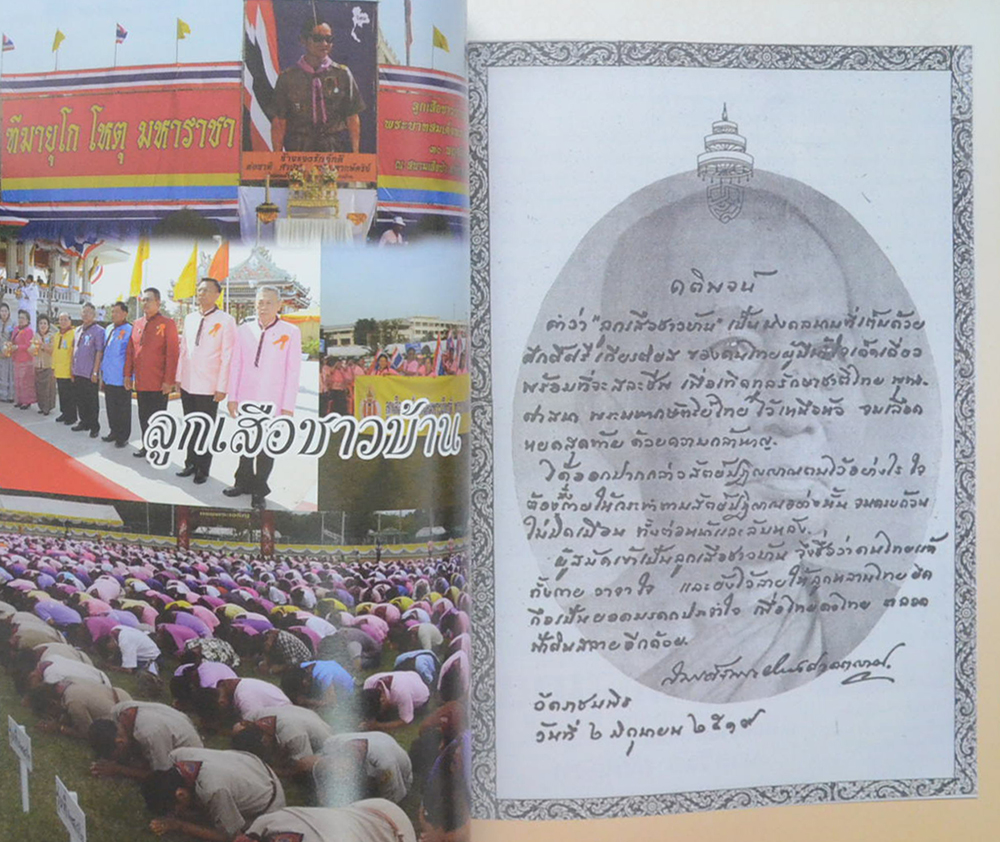 ฑีฆายุโก โหตุ มหาราชา
ลูกเสือชาว
ลูกเสือชาวบ้าน
คติพจน์
คำว่า "ลูกเสือชาวบ้าน" เป็นมงคลนามที่เต็มด้วย
ศักดิ์ศรี เกียรติยศ ของคนไทยผู้มีน้ำใจเด็ดเดี่ยว
พร้อมที่จะสละชีพ เพื่อเทิดทูลรักษาชาติไทย พุทธ-
ศาสนา พระมหากษัตริย์ไทย ไว้เหนือหัว จนเลือด
หยดสุดท้าย ด้วยความกล้าหาญ.
ได้ออกปากกล่าวสัตย์ปฏิญญาณตนไว้อย่างไร ใจ
ต้องให้กระทำตามสัตย์ปฏิญาณอย่างนั้น จน
ไม่บิดเบือน ทั้งต่อหน้าและลับหลัง.
ผู้สมัครเข้าเป็นลูกเสือชาวบ้าน จึงชื่อว่าคนไทยแท้
ทั้งกาย วาจา ใจ และยังไว้ลายให้ลูกหลานไทย ยึด
ถือเป็นยอดมรดกประจำใจ เพื่อไทยคงไทย ตลอด
ฟ้าดินสลายอีกด้วย.
วัดราชบพิธ
วันที่ ๒ มิถุนายน ๒๕๑๙